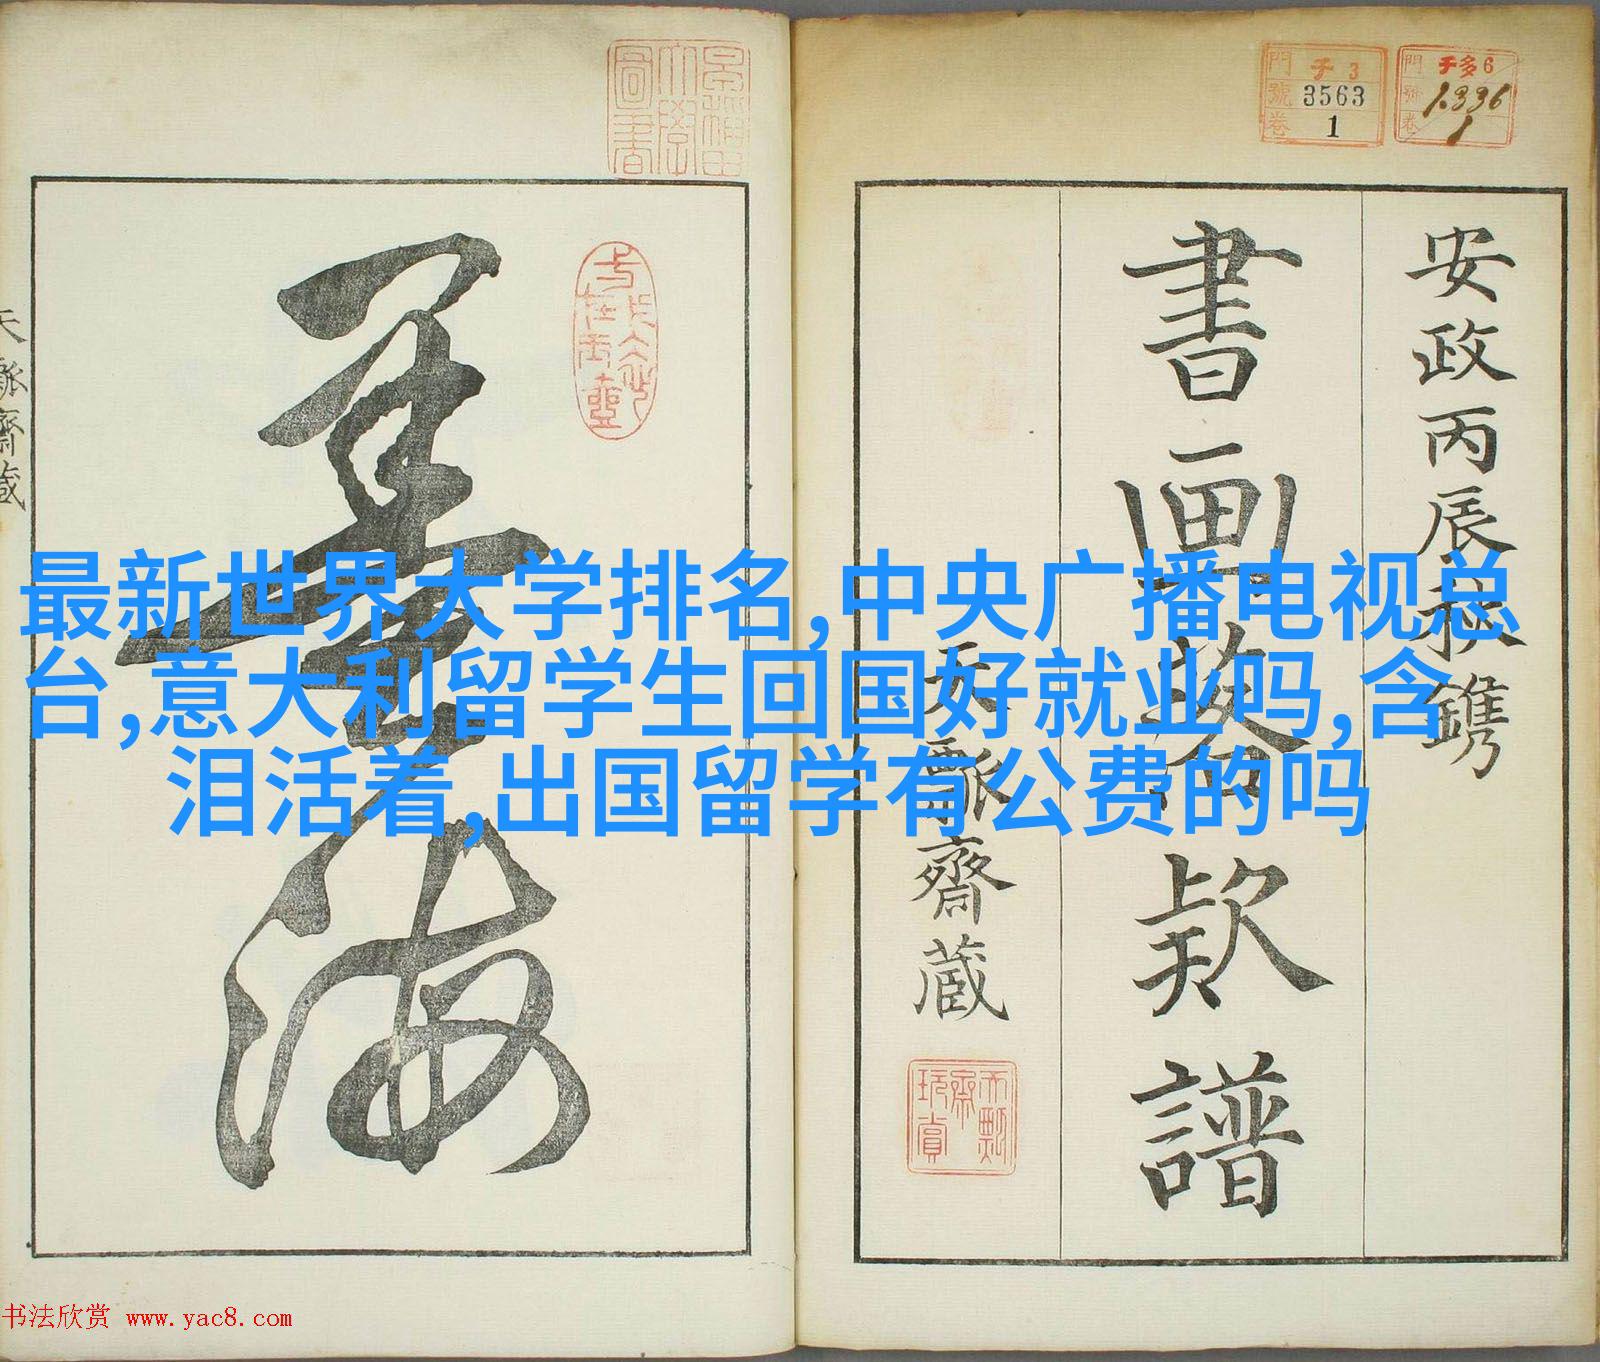 門 チ 3
號 3563
卷 1
門 チ多6
號 1.336
卷 1
安政丙辰秋鐫
書画落款譜
天瓢齋蔵
墨海
天瓢齋蔵
最新世界大学排名,中央广播电视总
台,意大利留学生回国好就业吗,含
泪活着,出国留学有公费的吗
书法欣赏 www.yac8.com